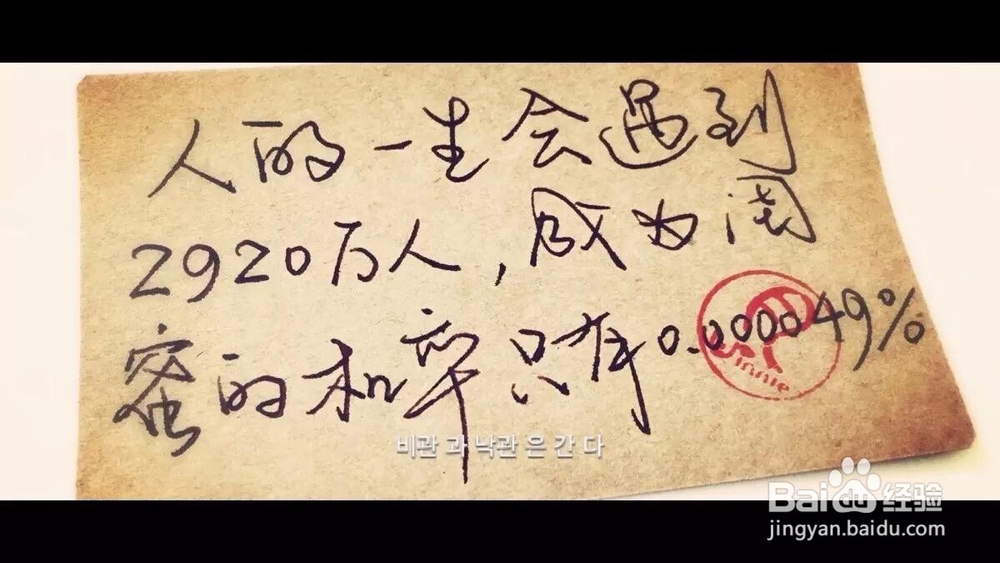 人的一生会遇到
2920万人,成为闺
蜜的机率只有0.000049%
비관과낙관은간다
Winnie
Baidu经验
jingyan.baidu.com